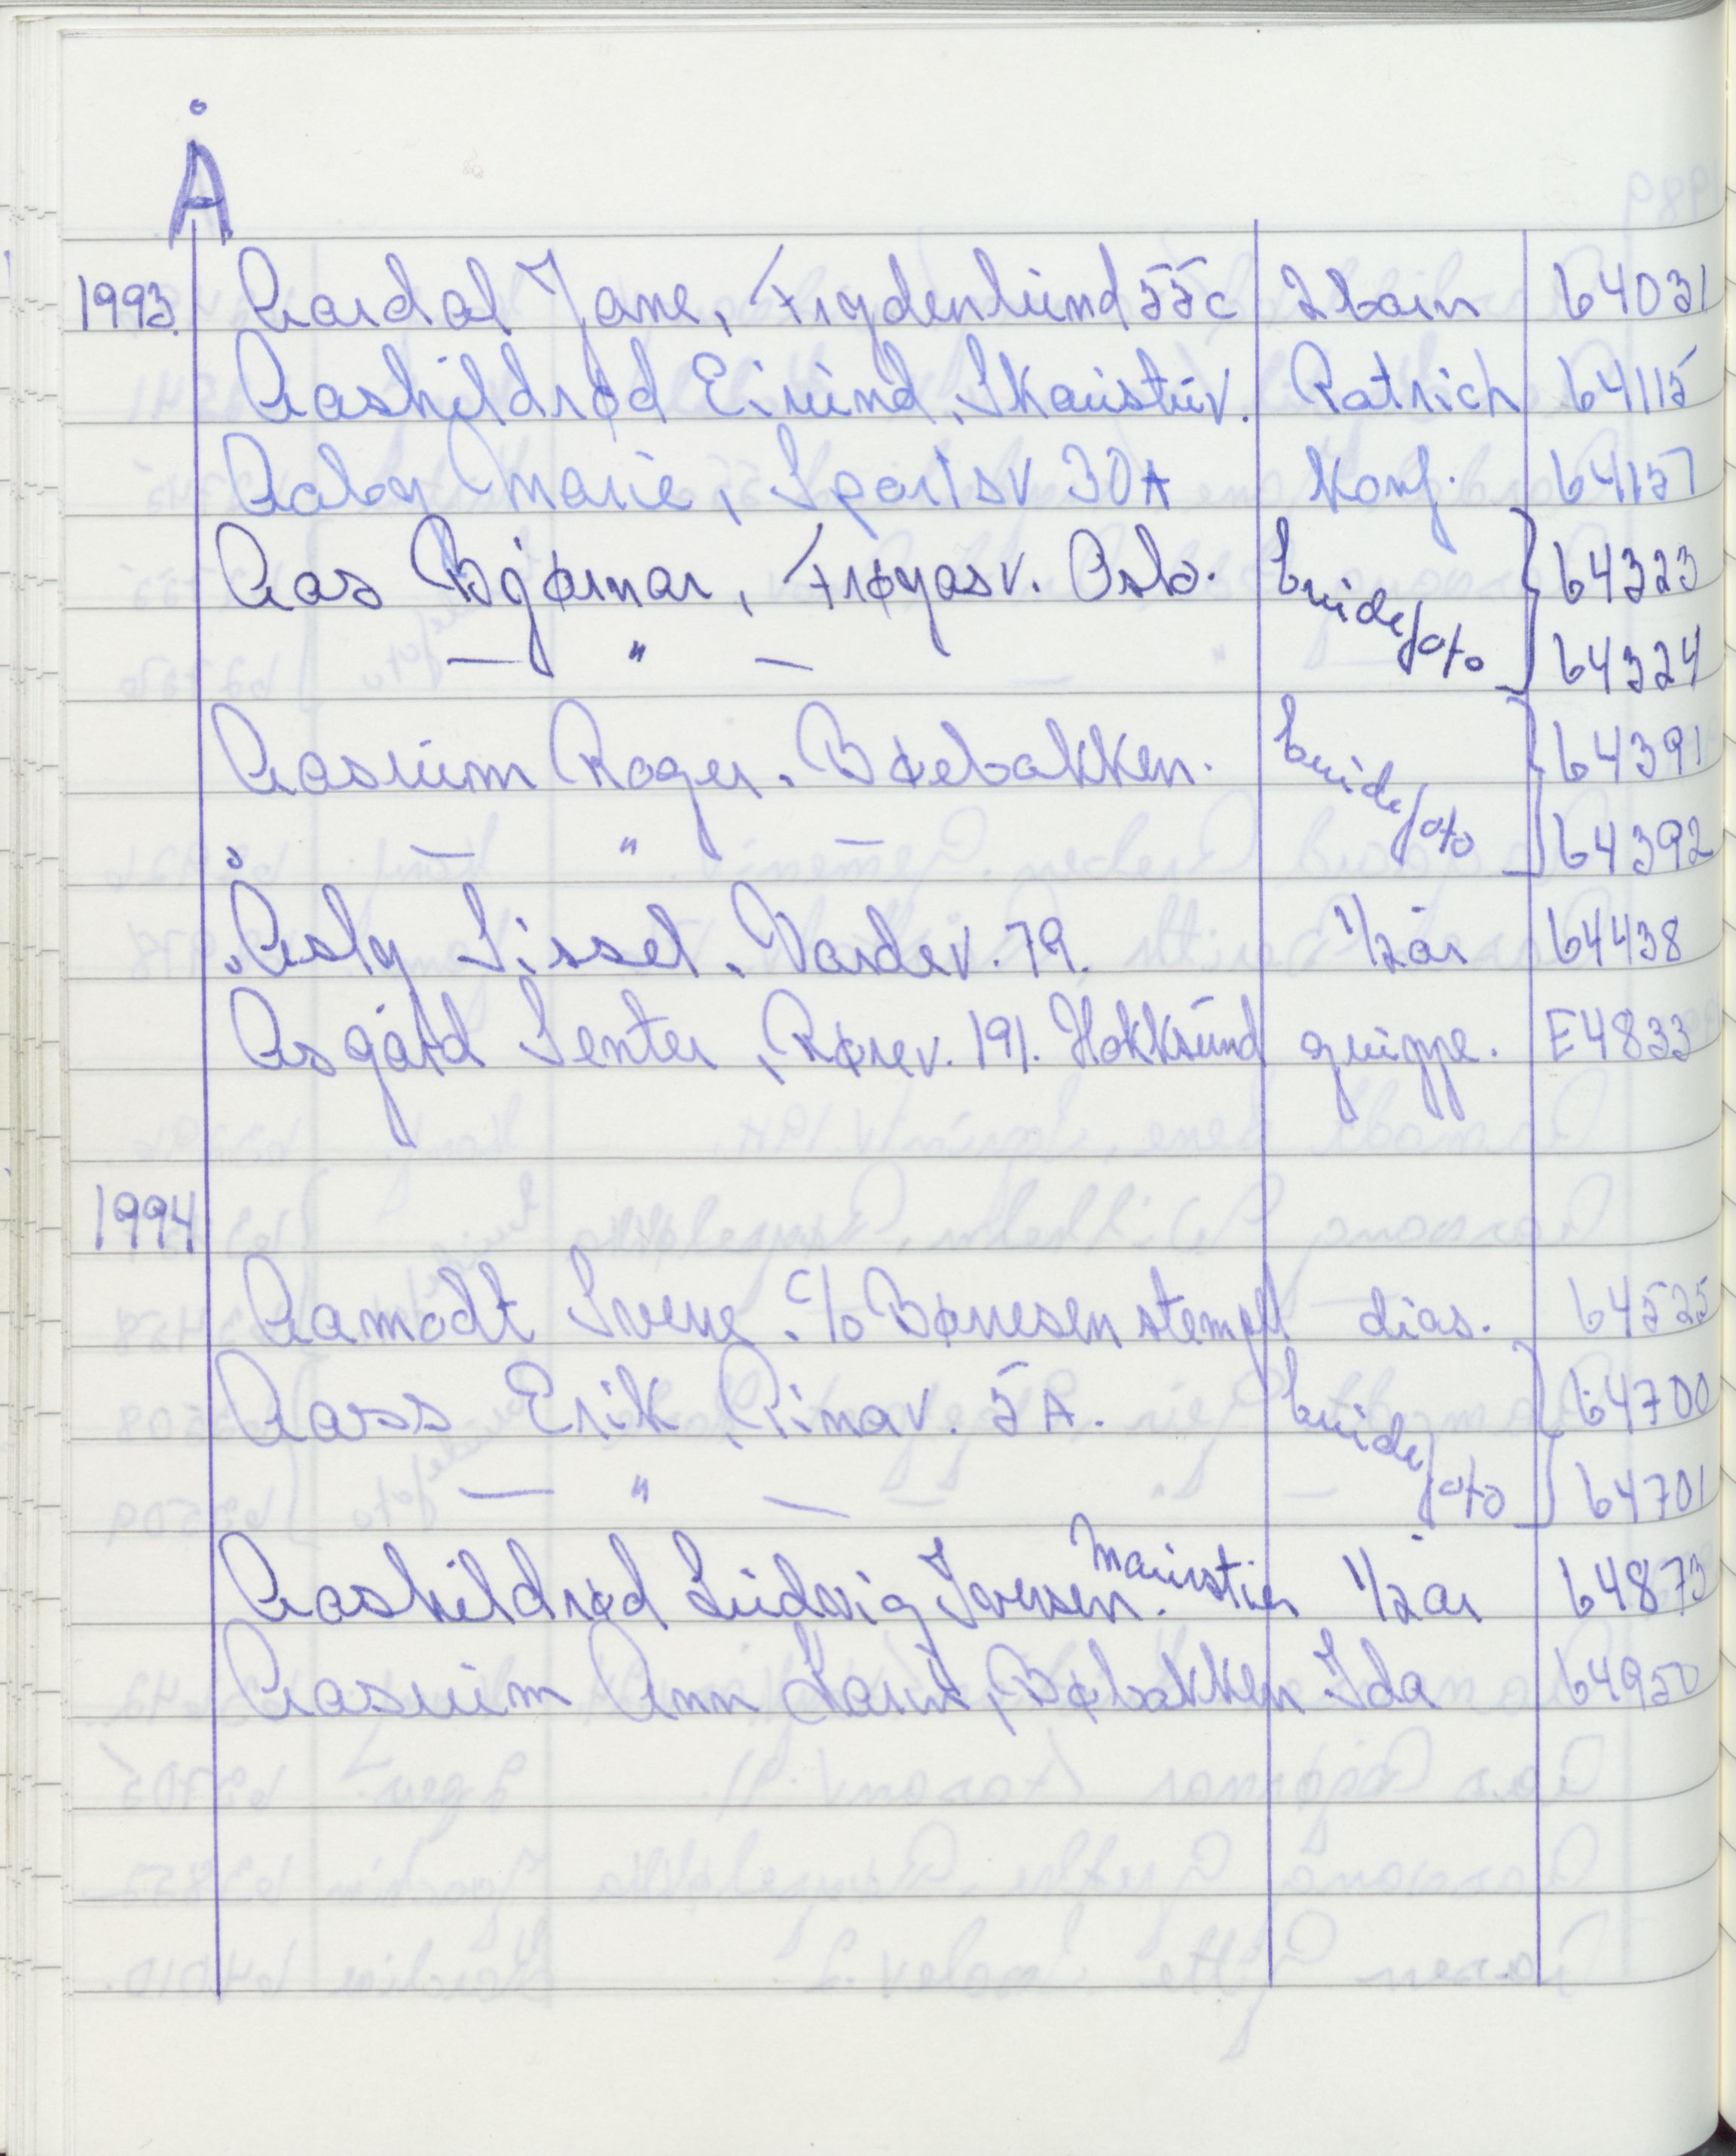 Å
1993. Aardal Jane, Frydenlund 55c 2 barn 64031
Aaskildrød Eirund, Skaustuv. Patrich 64115
Aaby Marie, Sportsv 30A Konf. 64157
Aas Bjørnar, Frøyasv. Oslo. brude 64323
— " — foto 64324
Aasrum Roger. Bøebakken. brude 64391
— " — foto 64392
Åsly Sissel. Vardev. 79. 1/2 år 64438
Åsgård Senter, Rørev. 191. Hokksund gruppe. E4833
1994
Aamodt Svene. c/o Børresen stempel dias. 64525
Aass Erik, Rinav. 5A. brude 64700
— " — foto 64701
Aaskildrød Ludvig Iversen. Maurstien 1/2 år 64873
Aasrum Ann Karin, Bøbakken Ida 64950